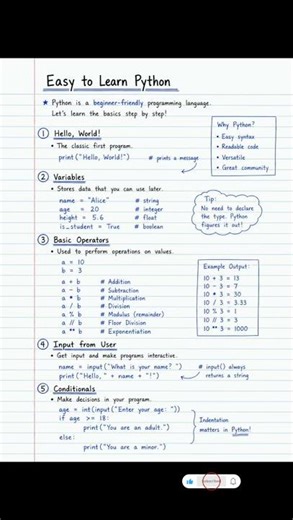 Easy to Learn Python
★ Python is a beginner-friendly programming language.
Let's learn the basics step by step!
Why Python?
• Easy syntax
• Readable code
• Versatile
• Great community
1 Hello, World!
• The classic first program.
print("Hello, World!") # prints a message
2 Variables
• Stores data that you can use later.
name = "Alice" # string
age = 20 # integer
height = 5.6 # float
is_student = True # boolean
Tip:
No need to declare
the type. Python
figures it out!
3 Basic Operators
• Used to perform operations on values.
a = 10
b = 3
a + b # Addition
a - b # Subtraction
a * b # Multiplication
a / b # Division
a % b # Modulus (remainder)
a // b # Floor Division
a ** b # Exponentiation
Example Output:
10 + 3 = 13
10 - 3 = 7
10 * 3 = 30
10 / 3 = 3.33
10 % 3 = 1
10 // 3 = 3
10 ** 3 = 1000
4 Input from User
• Get input and make programs interactive.
name = input("What is your name? ")
print("Hello, " + name + "!")
# input() always
returns a string
5 Conditionals
• Make decisions in your program.
age = int(input("Enter your age: "))
if age >= 18:
print("You are an adult.")
else:
print("You are a minor.")
Indentation
matters in Python!